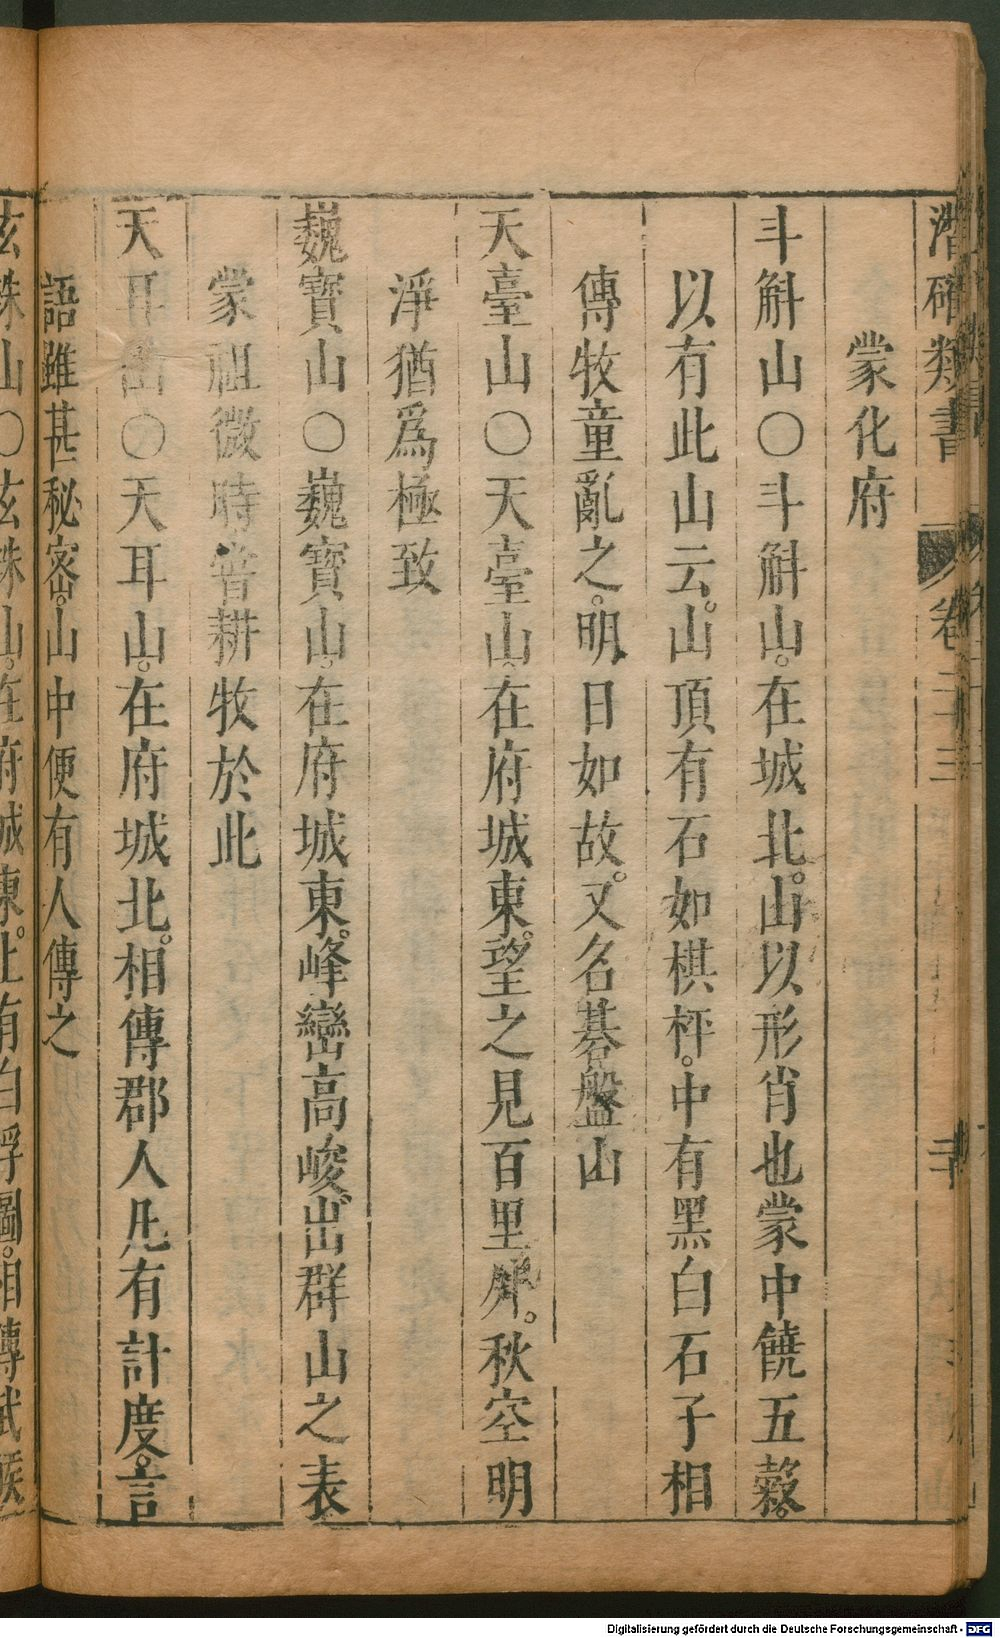 潛確類書 卷二十三 二十
蒙化府
斗斛山○斗斛山。在城北。山以形肖也蒙中饒五糓。
以有此山云。山頂有石如棋枰。中有黑白石子相
傳牧童亂之。明日如故。又名碁盤山
天臺山○天臺山。在府城東。望之見百里外。秋空明
淨猶爲極致
巍寶山○巍寶山。在府城東。峰巒高峻。出群山之表
蒙祖微時嘗耕牧於此
天耳山○天耳山。在府城北。相傳郡人凡有計度。言
語雖甚秘密。山中便有人傳之
玄珠山○玄珠山。在府城東。上有白浮圖。相傳武侯
Digitalisierung gefördert durch die Deutsche Forschungsgemeinschaft - DFG